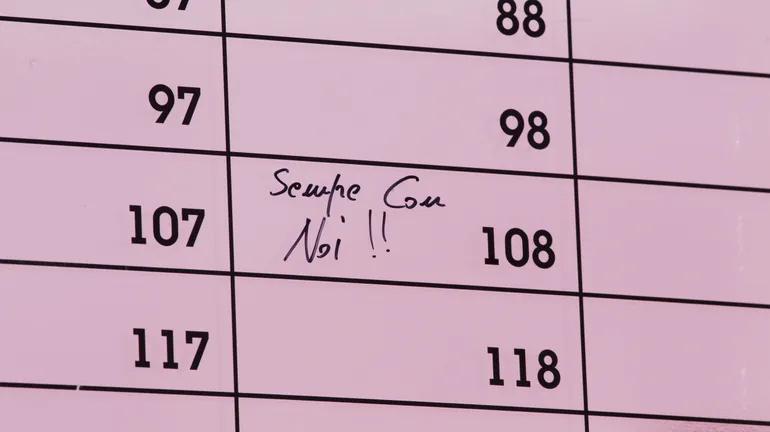 88
97 98
Sempre Con
Noi !!
107 108
117 118